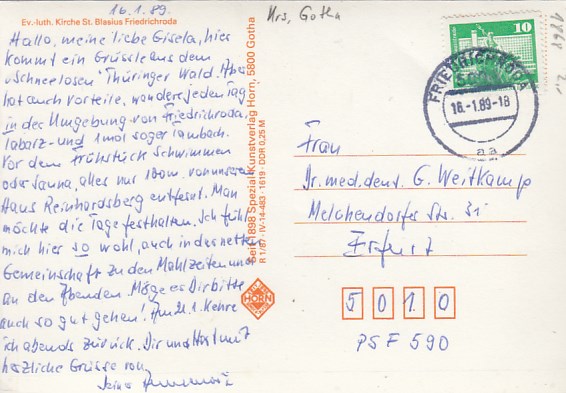 16.1.89.
Krs. Gotha
Ev.-luth. Kirche St. Blasius Friedrichroda
Hallo, meine liebe Gisela, hier
kommt ein Grüssle aus dem
"schneelosen" Thüringer Wald. Aber
hat auch Vorteile, wandere jeden Tag
in der Umgebung von Friedrichroda
Tabarz- und 1mol sogar Tambach.
Vor dem Frühstück Schwimmen
oder Sauna, alles nur 100m. von unserem
Haus Reinhardsberg entfernt. Man
möchte die Tage festhalten. Ich fühl
mich hier so wohl, auch in der netten
Gemeinschaft zu den Mahlzeiten und
an den Abenden. Möge es Dir bitte
auch so gut gehen! Am 21.1. kehre
ich abends zurück. Dir und Horst mit
herzliche Grüsse von
Seit 1898 Spezial-Kunstverlag Horn, 5800 Gotha
R 1/87 · IV-14-483 · 1619 · DDR 0,25 M
HORN
10
FRIEDRICHRODA
5804
16.-1.89-18
aa
Frau
Dr. med. dent. G. Weitkamp
Melchendorfer Str. 31
Erfurt
5010
PSF 590